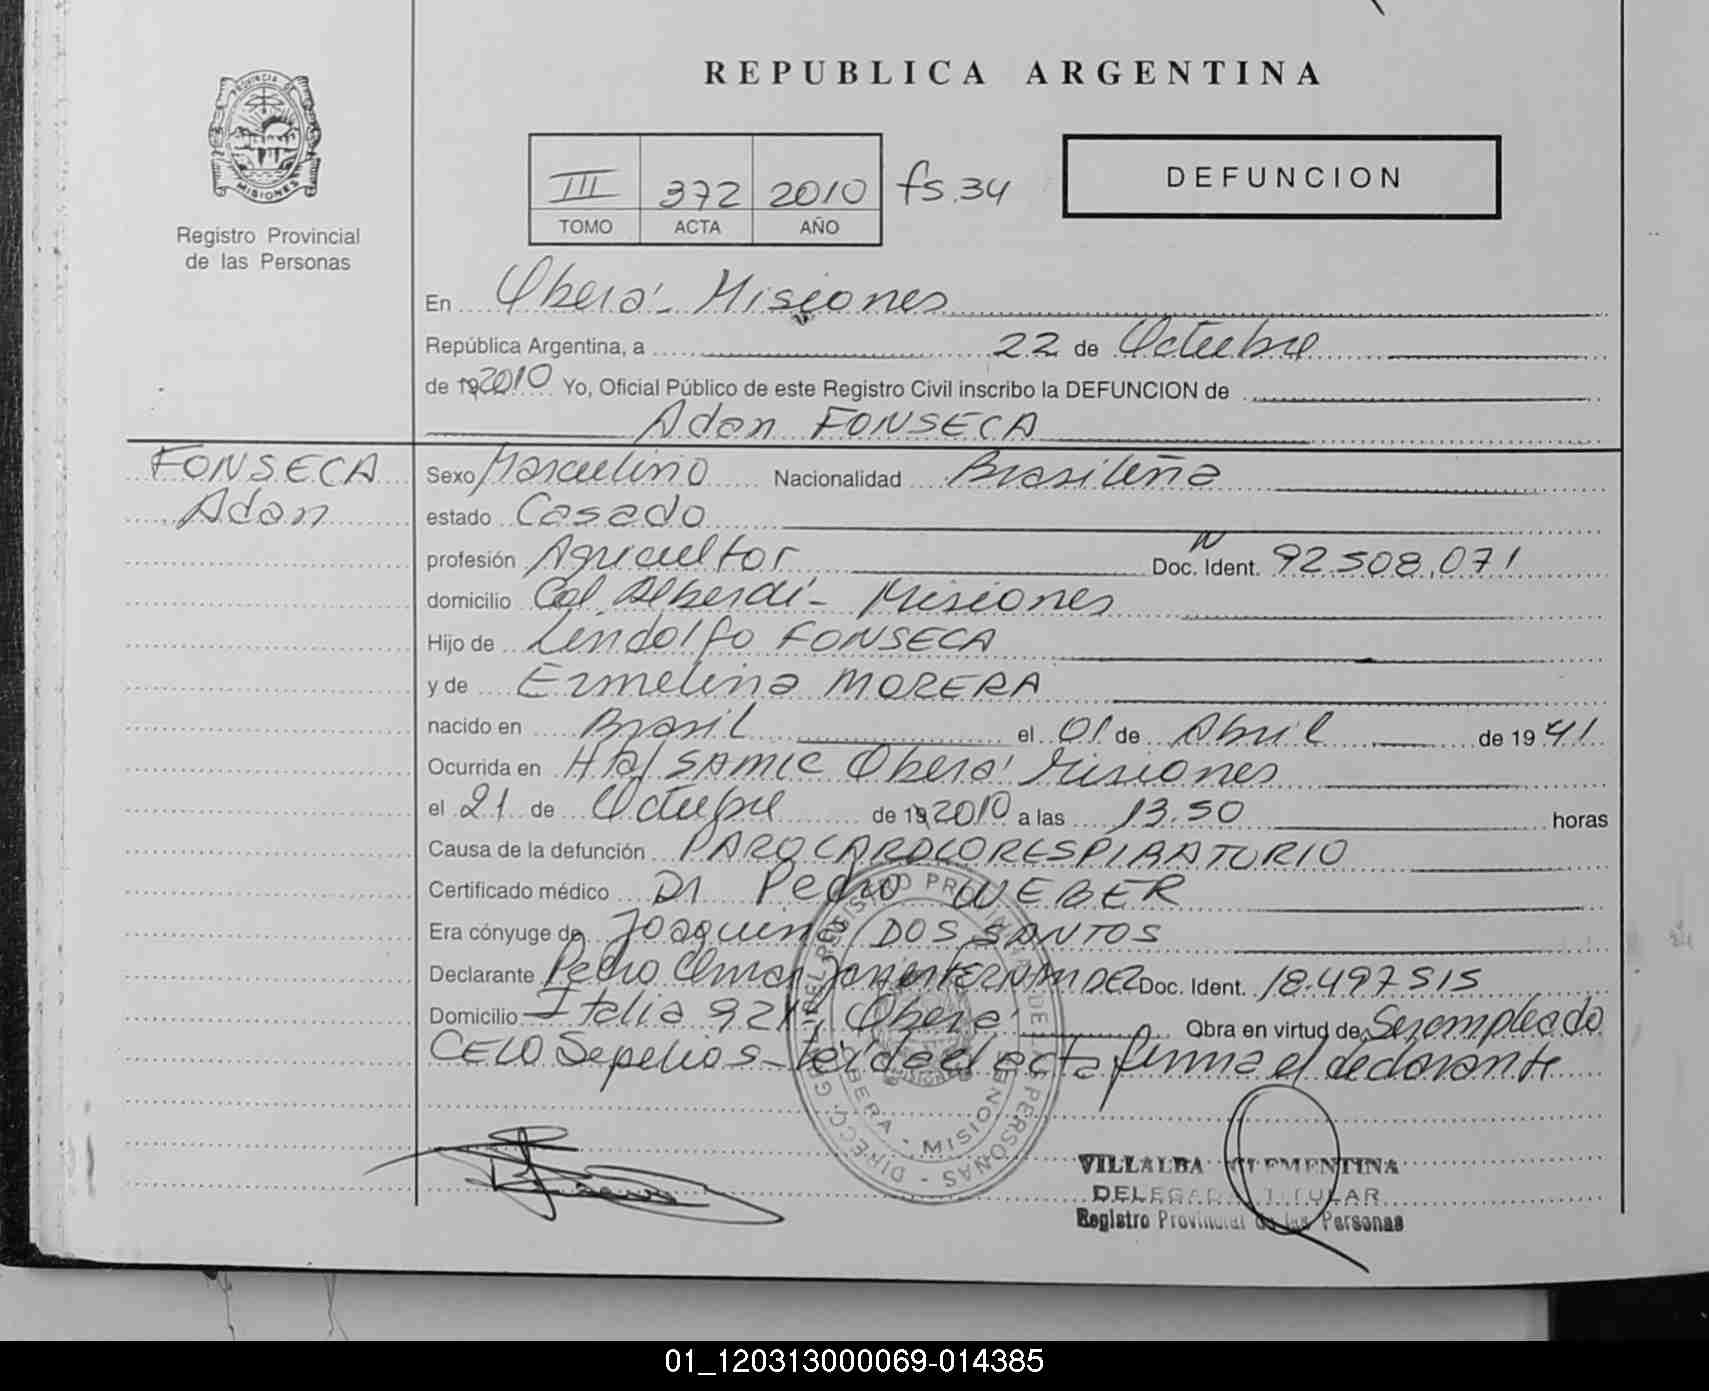 REPUBLICA ARGENTINA
PROVINCIA DE
MISIONES
Registro Provincial
de las Personas
III 372 2010 fs.34
TOMO ACTA AÑO
DEFUNCION
En Oberá - Misiones
República Argentina, a 22 de Octubre
de 19 2010 Yo, Oficial Público de este Registro Civil inscribo la DEFUNCION de
Adan FONSECA
FONSECA
Adan
Sexo Masculino Nacionalidad Brasileña
estado Casado
profesión Agricultor Doc. Ident. 92.508.071
domicilio Col. Alberdi - Misiones
Hijo de Lindolfo FONSECA
y de Ermelina MORERA
nacido en Brasil el 01 de Abril de 19 41
Ocurrida en Htal SAMIC Oberá Misiones
el 21 de Octubre de 19 2010 a las 13.50 horas
Causa de la defunción PARO CARDIORESPIRATORIO
Certificado médico Dr Pedro WEBER
Era cónyuge de Joaquina DOS SANTOS
Declarante Pedro Omar FERNANDEZ Doc. Ident. 18.497515
Domicilio Italia 921, Oberá Obra en virtud de Ser empleado
CELO Sepelios - leída el acta firma el declarante
DIRECC. GRAL. DEL REGISTRO PROVINCIAL DE LAS PERSONAS
OBERA - MISIONES
MISIONES
VILLALBA CLEMENTINA
DELEGADA TITULAR
Registro Provincial de las Personas
01_120313000069-014385